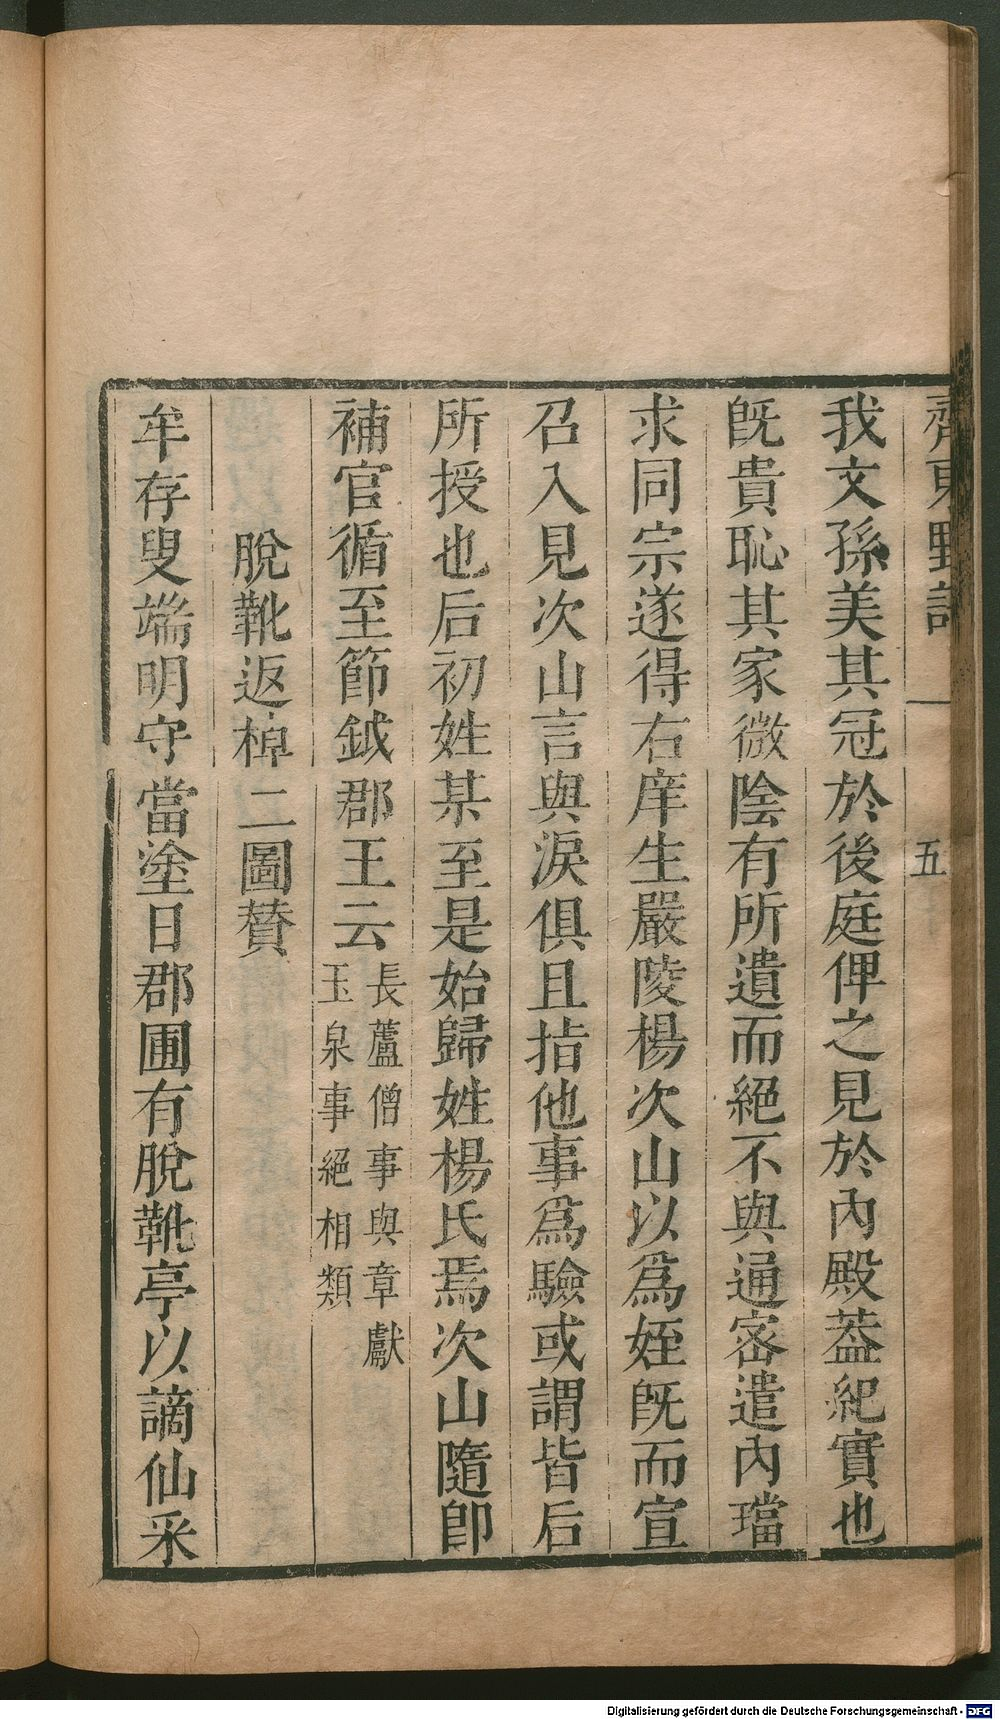 齊東野語 一 五
我文孫美其冠於後庭俾之見於內殿葢紀實也
旣貴恥其家微陰有所遺而絕不與通密遣內璫
求同宗遂得右庠生嚴陵楊次山以爲姪旣而宣
召入見次山言與淚俱且指他事爲驗或謂皆后
所授也后初姓某至是始歸姓楊氏焉次山隨卽
補官循至節鉞郡王云
長蘆僧事與章獻
玉泉事絕相類
脫靴返棹二圖贊
牟存叟端明守當塗日郡圃有脫靴亭以謫仙采
Digitalisierung gefördert durch die Deutsche Forschungsgemeinschaft - DFG